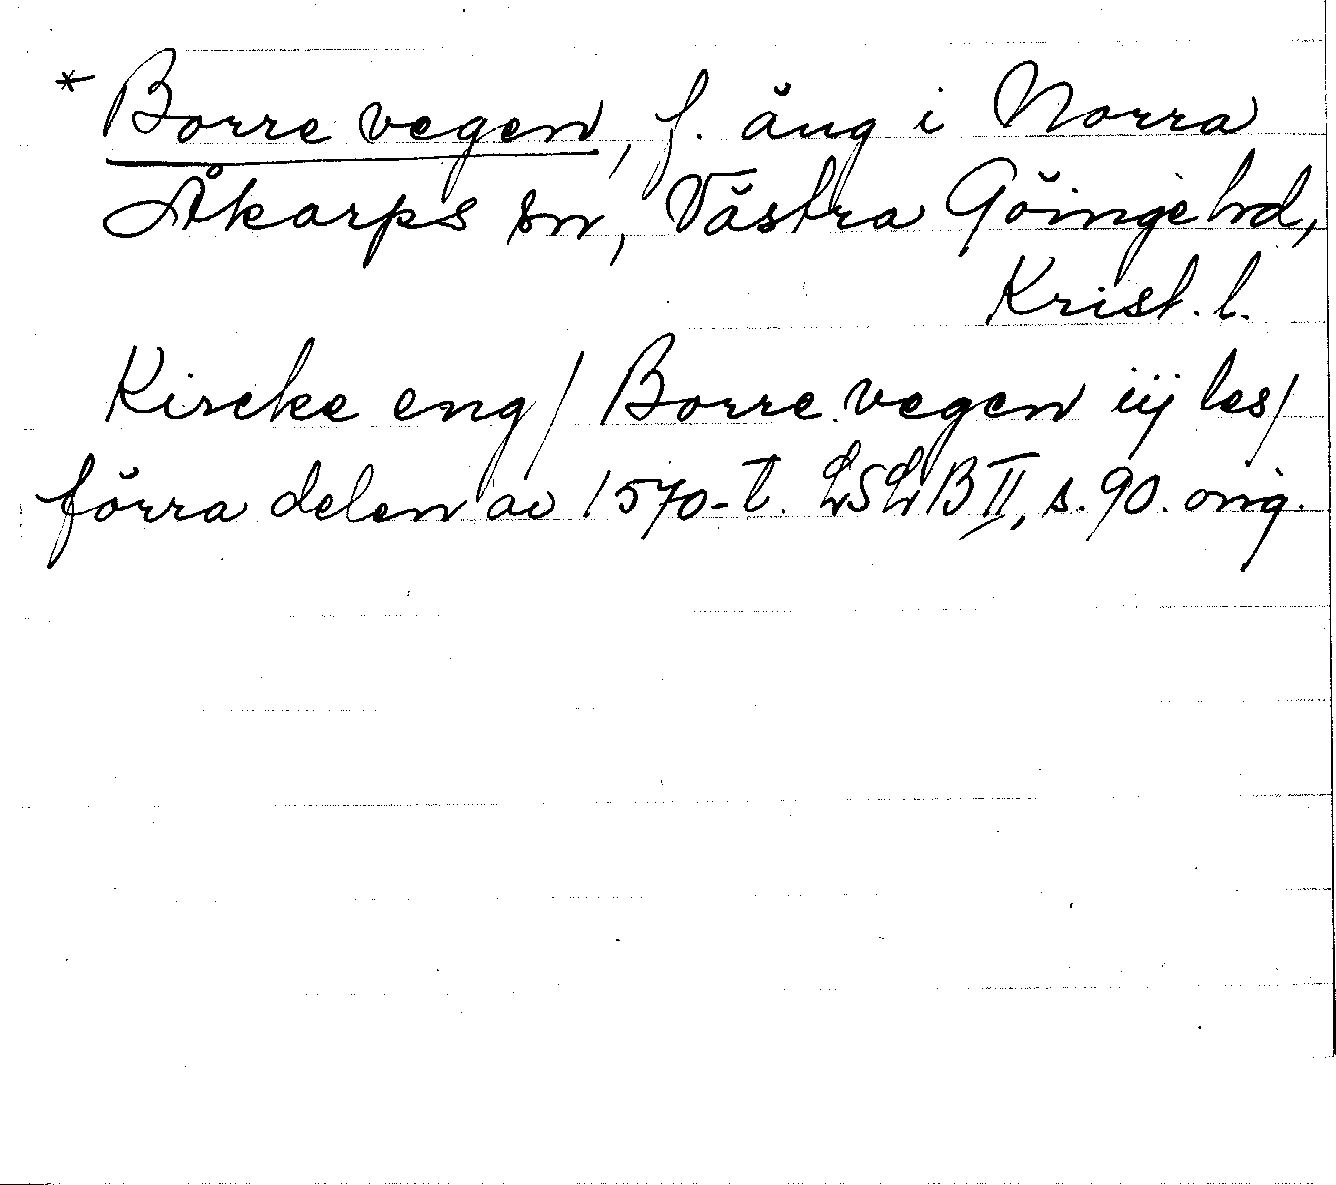 * Borre vegen, f. äng i Norra
Åkarps sn, Västra Göinge hd,
Krist. l.
Kircke eng / Borre vegen iij les /
förra delen av 1570-t. LSLB II, s. 90. orig.